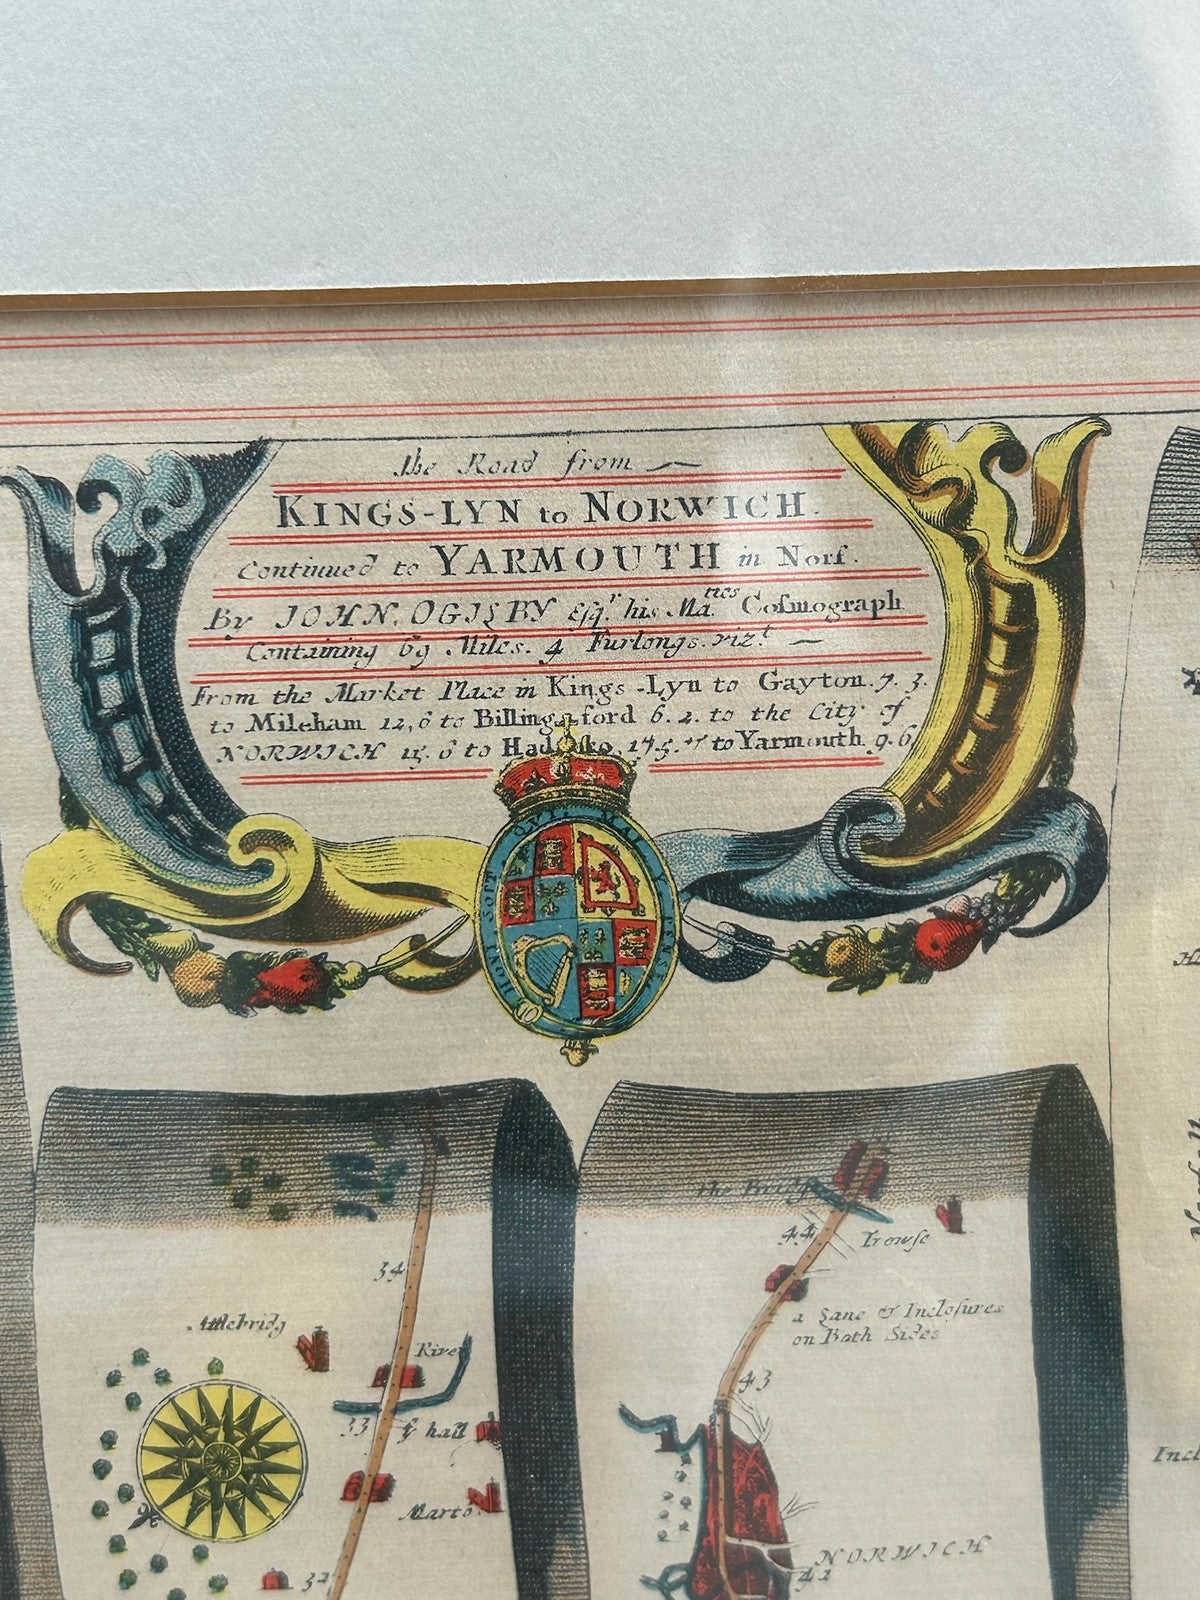 The Road from
KINGS-LYN to NORWICH.
Continued to YARMOUTH in Norf.
By JOHN. OGILBY Esqr. his Ma.ties Cosmograph
Containing 69 Miles. 4 Furlongs. vizt
From the Market Place in Kings-Lyn to Gayton. 7. 3.
to Mileham 12, 6 to Billingsford 6. 2. to the City of
NORWICH 15. 6 to to Yarmouth 9. 6
HONI SOIT QVI MAL Y PENSE
the Bridg
44
Trowse
34
a Lane & Inclosures
on Both Sides
Attlebridg
River
43
33
ye hall
Marto
NORWICH
32
42
Incl